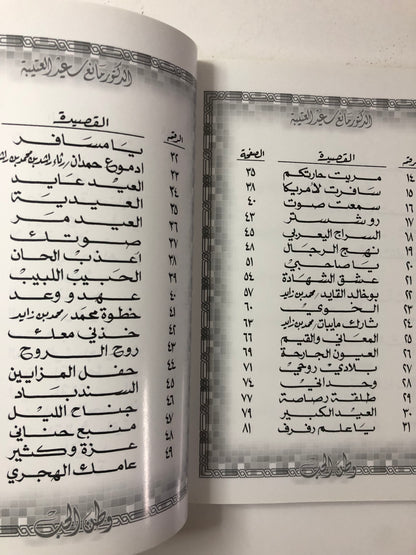 الدكتور مانع سعيد العتيبة
القصيدة الصفحة
١٤ مريت حارتكم ٣٥
١٥ سافرت لأمريكا ٣٨
١٦ سمعت صوت ٤٠
١٧ روشستر ٤٣
١٨ السراج اليعربي ٤٥
١٩ نهج الرجال ٤٨
٢٠ يا صاحبي ٥١
٢١ عشق الشهادة ٥٤
٢٢ بوخالد القايد / محمد بن زايد ٥٧
٢٣ الخوي ٦٠
٢٤ شارك / محمد بن زايد ٦٣
٢٥ المعاني والقيم ٦٦
٢٦ العيون الجارحة ٦٩
٢٧ بلادي روحي ٧١
٢٨ وحداني ٧٤
٢٩ طلقة رصاصة ٧٧
٣٠ العيد الكبير ٧٩
٣١ يا علم رفرف ٨١
وطن الحب
الدكتور مانع سعيد العتيبة
الرقم القصيدة
٣٢ يا مسافر
٣٣ ادموع حمدان رثاء راشد بن محمد بن راشد
٣٤ العيد عايد
٣٥ العيدية
٣٦ العيد مر
٣٧ صوتك
٣٨ اعذب الحان
٣٩ الحبيب اللبيب
٤٠ عهد ووعد
٤١ خطوة محمد / محمد بن زايد
٤٢ خذني معك
٤٣ روح الروح
٤٤ حفل المزايين
٤٥ السندباد
٤٦ جناح الليل
٤٧ منبع حناني
٤٨ عزة وكثير
٤٩ عامك الهجري
وطن الحب